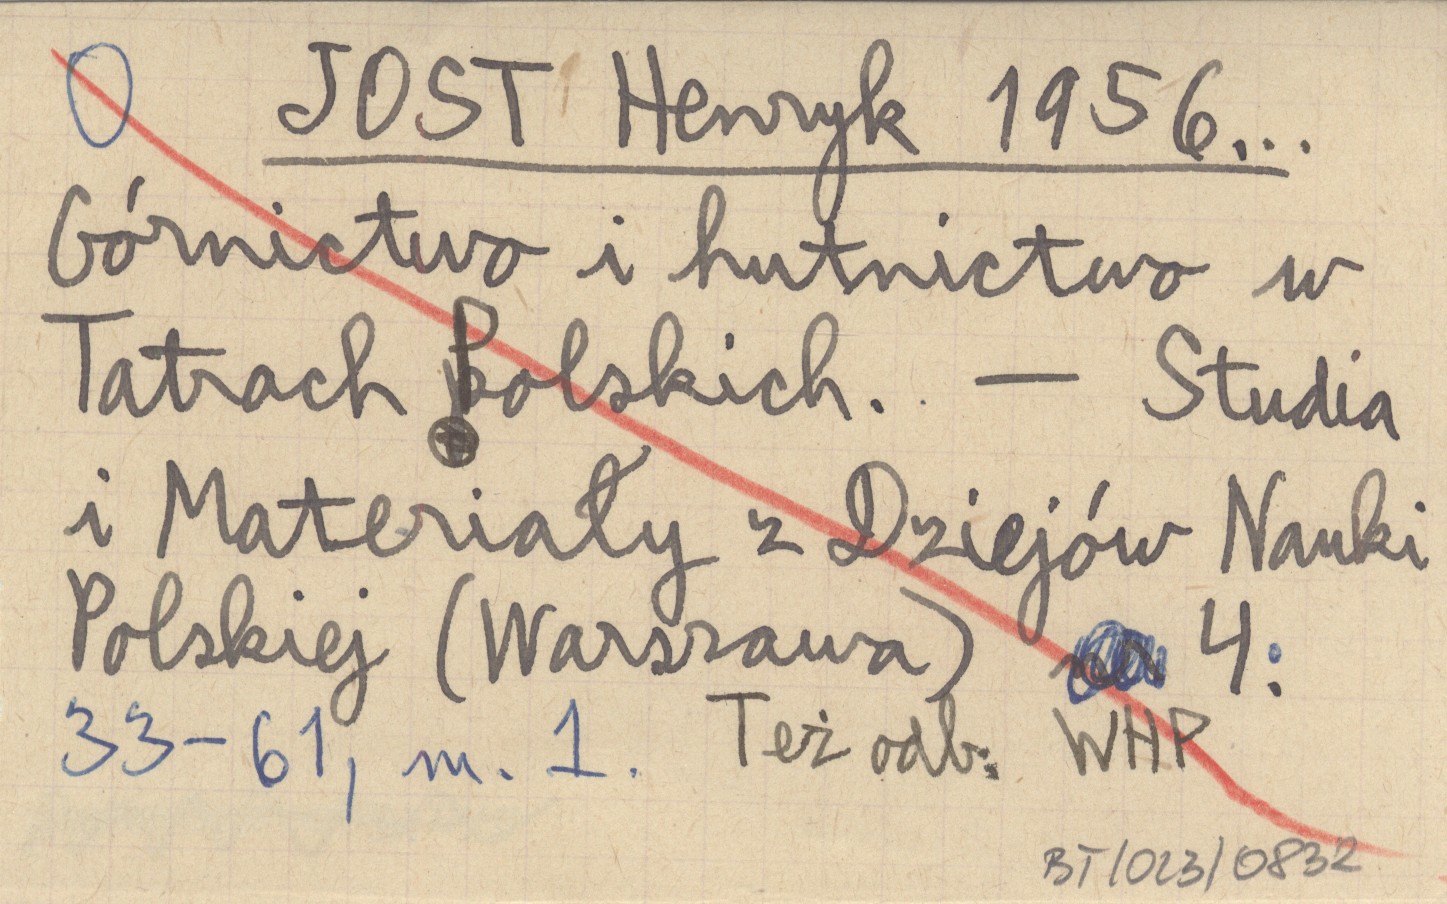 JOST Henryk 1956...
Górnictwo i hutnictwo w
Tatrach Polskich. — Studia
i Materiały z Dziejów Nauki
Polskiej (Warszawa) 4:
33-61, m. 1. Też odb. WHP
BT/023/0832